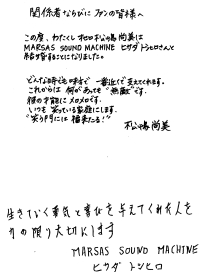 関係者ならびにファンの皆様へ
この度、わたくし 松嶋尚美は
MARSAS SOUND MACHINE ヒサダトシヒロさんと
結婚することになりました。
どんな時でも味方で一番近くで支えてくれます。
これからは何があっても"無敵"です。
彼の才能にメロメロです。
いつも笑っている家庭にします。
"笑う門には福来たる!"
松嶋尚美
生きなく勇気と喜びを与えてくれた人を
力の限り大切にします
MARSAS SOUND MACHINE
ヒサダ トシヒロ